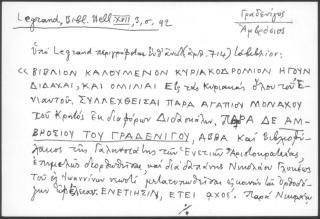 Legrand, Bibl. Hell. XVII, 3, σ. 92
Γραδενίγος
Ἀμβρόσιος
ὑπὸ Legrand περιγράφεται
«ΒΙΒΛΙΟΝ ΚΑΛΟΥΜΕΝΟΝ ΚΥΡΙΑΚΟΔΡΟΜΙΟΝ ΗΓΟΥΝ
ΔΙΔΑΧΑΙ, ΚΑΙ ΟΜΙΛΙΑΙ Εἰς τὰς Κυριακὰς ὅλου τοῦ Ἐ-
νιαυτοῦ. ΣΥΛΛΕΧΘΕΙΣΑΙ ΠΑΡΑ ΑΓΑΠΙΟΥ ΜΟΝΑΧΟΥ
τοῦ Κρητὸς ἐκ διαφόρων Διδασκάλων. ΠΑΡΑ ΔΕ ΑΜ-
ΒΡΟΣΙΟΥ ΤΟΥ ΓΡΑΔΕΝΙΓΟΥ, ΑΒΒΑ Καὶ Βιβλιοφύ-
λακος τῆς Γαληνοτάτης τῶν Ἐνετιῶν Ἀριστοκρατείας,
ἐπιμελῶς διορθωθεῖσαι, καὶ διὰ δαπάνης Νικολάου Γλυκέως
τοῦ ἐξ Ἰωαννίνων νεωστὶ μετατυπωθεῖσαι
ΕΝΕΤΙΗΣΙΝ, ΕΤΕΙ αχοε. Παρὰ Νικολάῳ